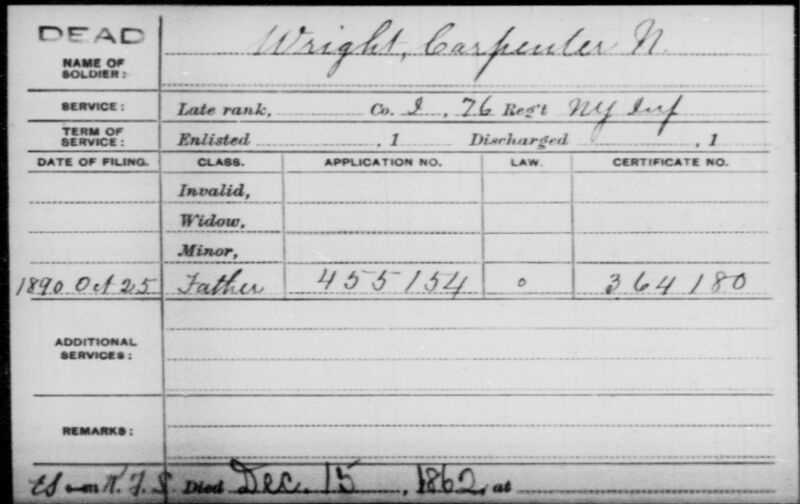 DEAD
NAME OF SOLDIER: Wright, Carpenter N.
SERVICE: Late rank, Co. I, 76 Reg't NY Inf
TERM OF SERVICE: Enlisted , 1 Discharged , 1
DATE OF FILING. CLASS. APPLICATION NO. LAW. CERTIFICATE NO.
Invalid,
Widow,
Minor,
1890 Oct 25 Father 455154 o 364180
ADDITIONAL SERVICES:
REMARKS:
Died Dec. 15, 1862, at